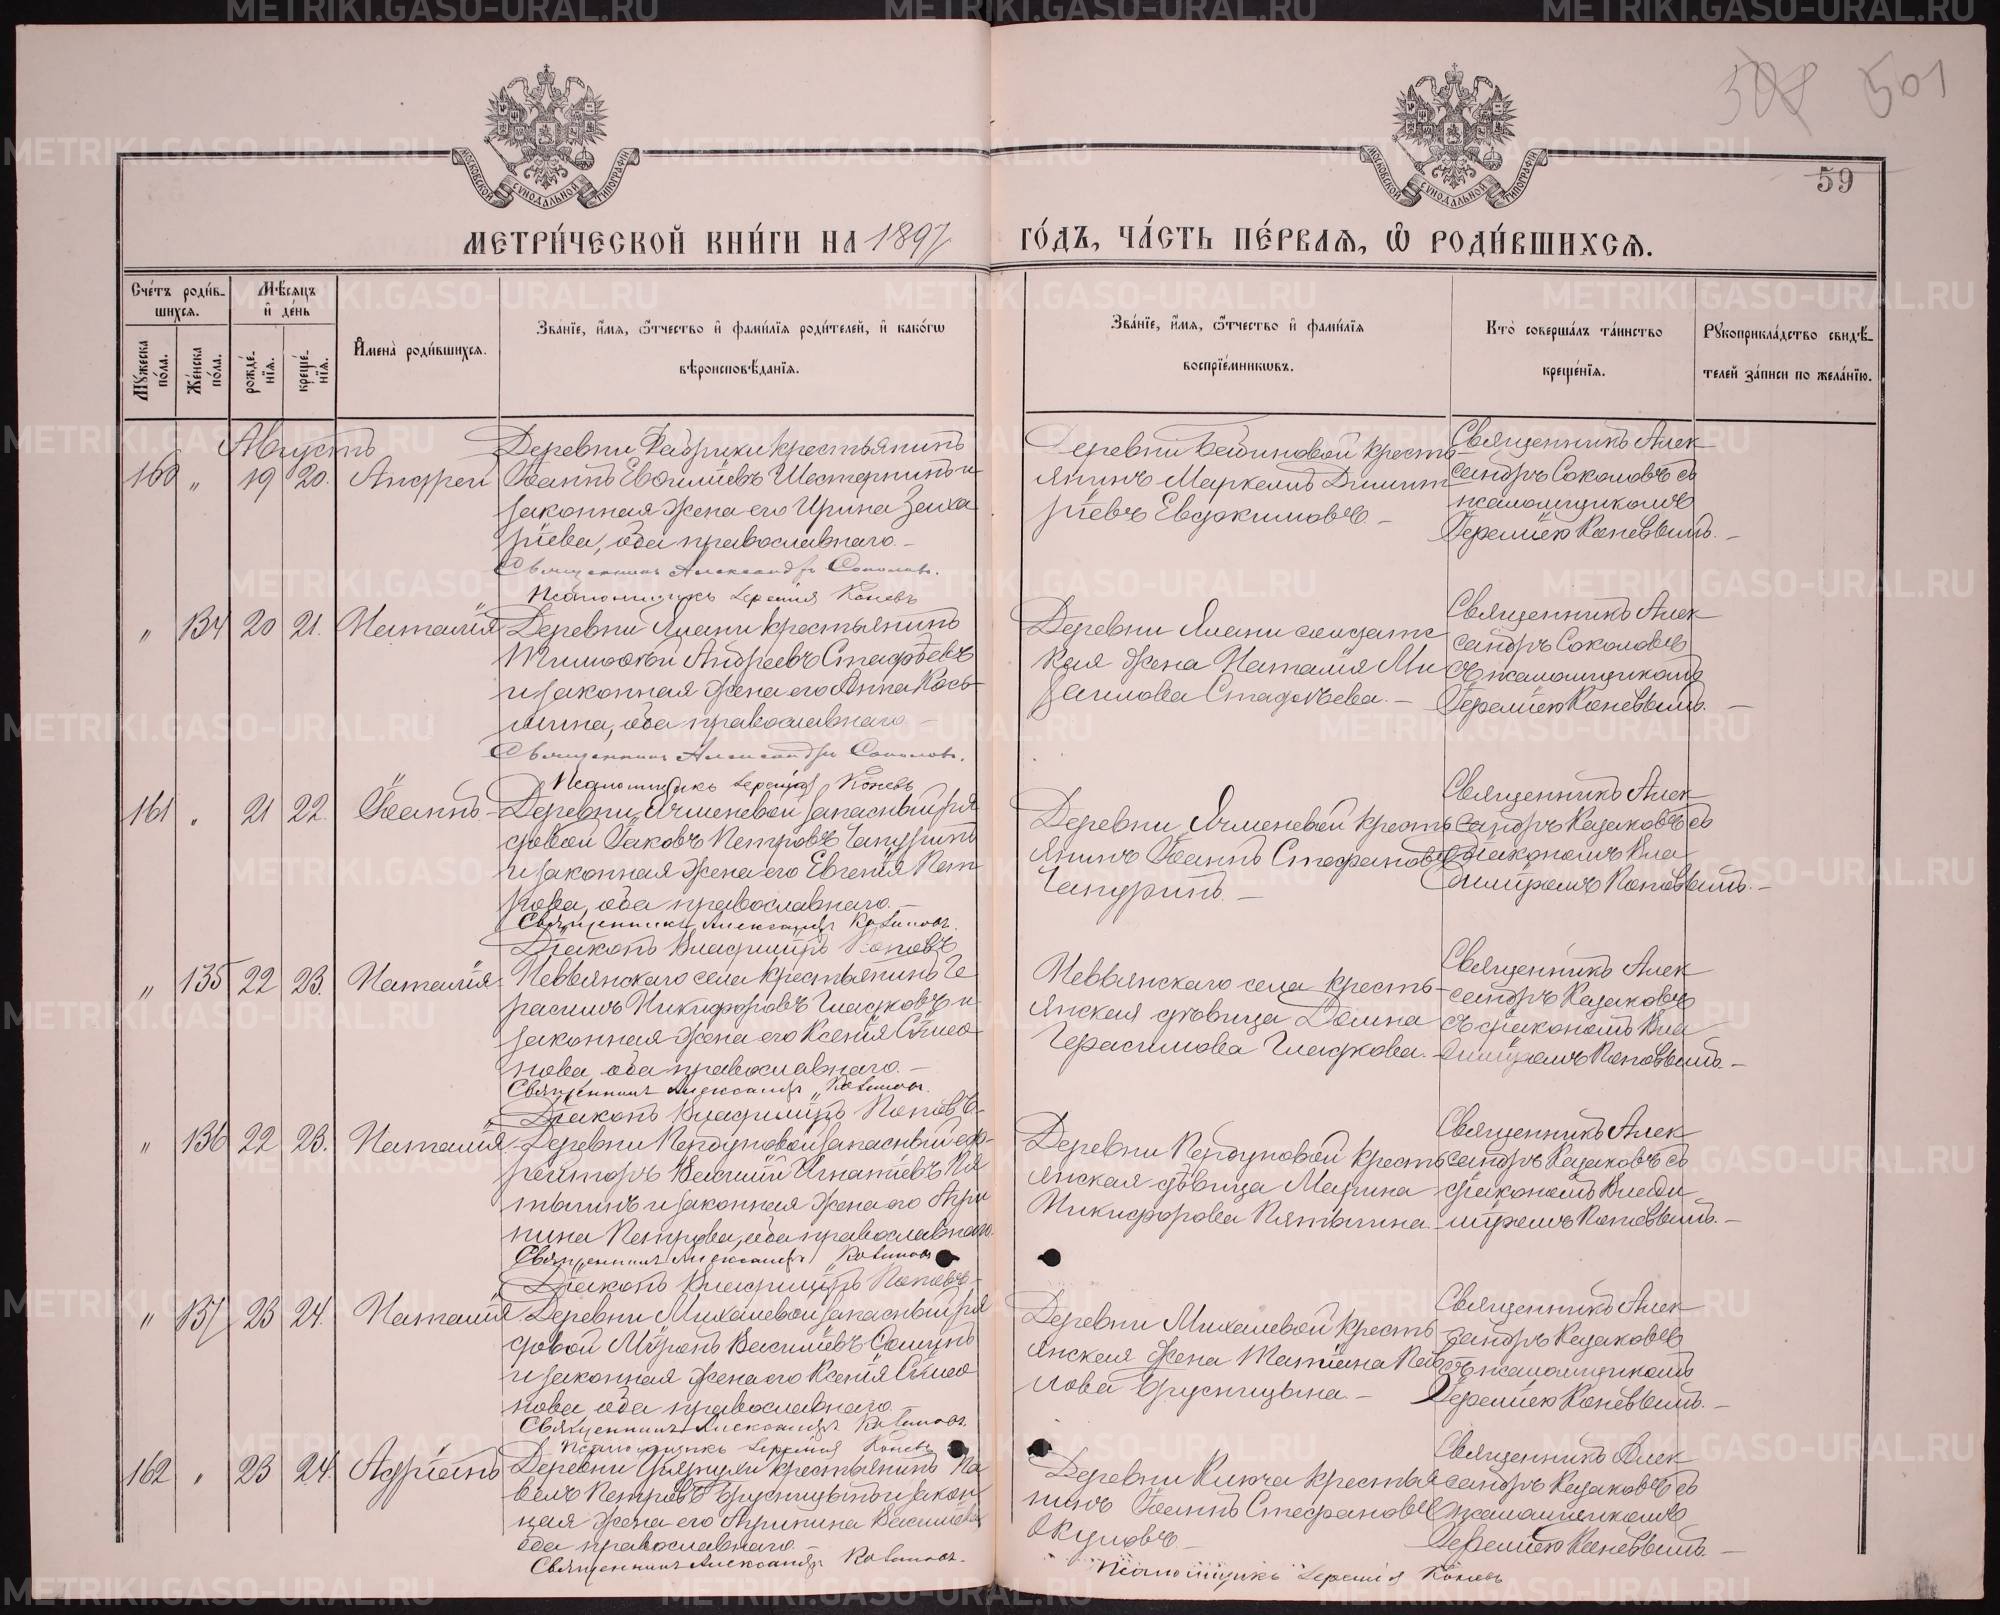 501
МОСКОВСКОЙ СѴНОДАЛЬНОЙ ТИПОГРАФІИ
МОСКОВСКОЙ СѴНОДАЛЬНОЙ ТИПОГРАФІИ
59
МЕТРИ́ЧЕСКОЙ КНИ́ГИ НА 1897 ГО́ДЪ, ЧА́СТЬ ПЕ́РВАЯ, Ѡ РОДИ́ВШИХСЯ.
Сче́тъ роди́в-
шихся.
Мꙋжеска по́ла.
Же́нска по́ла.
Мѣ́сяцъ
и де́нь
рожде́-нїя.
креще́-нїя.
И҆мена̀ роди́вшихся.
Зва́нїе, и҆́мя, ѻ҆́тчество и҆ фами́лїя роди́телей, и҆ како́гѡ
вѣроисповѣ́данїя.
Зва́нїе, и҆́мя, ѻ҆́тчество и҆ фами́лїя
воспрїе́мникѡвъ.
Кто̀ соверша́лъ та́инство
креще́нїя.
Рꙋкоприкла́дство свидѣ́-
телей за́писи по жела́нїю.
Августъ
160 " 19 20. Андрей
Деревни Фабрики крестьянинъ
Іоаннъ Шестернинъ и
законная жена его Ирина Заха
ріева, оба православнаго. -
Священникъ Александръ Соколовъ.
Псаломщикъ Іеремія Коневъ
Деревни крестъ-
янинъ Маркеллъ Димит
ріевъ Евдокимовъ. -
Священникъ Алек
сандръ Соколовъ съ
псаломщикомъ
Іереміею Коневымъ. -
" 134 20 21. Наталія
Деревни Ялани крестьянинъ
Тимофей Андреевъ Стафѣевъ
и законная жена его Анна Козь
мина, оба православнаго -
Священникъ Александръ Соколовъ.
Псаломщикъ Іеремія Коневъ
Деревни Ялани солдатс
кая жена Наталія Ми
хаилова Стафѣева. -
Священникъ Алек
сандръ Соколовъ
съ псаломщикомъ
Іереміею Коневымъ. -
161 " 21 22. Іоаннъ.
Деревни Ячменевой запасный ря
довой Іаковъ Петровъ Чапуринъ
и законная жена его Евгенія Пет
рова, оба православнаго. -
Священникъ Александръ Казаковъ.
Діаконъ Владиміръ Поповъ
Деревни Ячменевой кресть
янинъ Іоаннъ Стефановъ
Чапуринъ. -
Священникъ Алек
сандръ Казаковъ съ
діакономъ Вла
диміромъ Поповымъ. -
" 135 22 23. Наталія
Невьянскаго села крестьянинъ Ге
расимъ Никифоровъ Гладковъ и
законная жена его Ксенія Симео
нова, оба православнаго. -
Священникъ Александръ Казаковъ.
Діаконъ Владиміръ Поповъ -
Невьянскаго села кресть-
янская дѣвица Домна
Герасимова Гладкова. -
Священникъ Алек
сандръ Казаковъ
съ діакономъ Вла
диміромъ Поповымъ. -
" 136 22 23. Наталія
Деревни запасный еф-
рейторъ Василій Игнатіевъ Пя
тыгинъ и законная жена его Агри
пина Петрова, оба православнаго.
Священникъ Александръ Казаковъ
Діаконъ Владиміръ Поповъ -
Деревни кресть
янская дѣвица Марина
Никифорова
Священникъ Алек
сандръ Казаковъ съ
діакономъ Влади
міромъ Поповымъ. -
" 137 23 24. Наталія
Деревни Михалевой запасный ря
довой Миронъ Василіевъ
и законная жена его Ксенія Симео
нова оба православнаго. -
Священникъ Александръ Казаковъ.
Псаломщикъ Іеремія Коневъ
Деревни Михалевой кресть
янская жена Татіана Пав
лова Брусницына. -
Священникъ Алек
сандръ Казаковъ
съ псаломщикомъ
Іереміею Коневымъ. -
162 " 23 24. Адріанъ
Деревни крестьянинъ Па
велъ Петровъ Брусницынъ и закон
ная жена его Агрипина Василіева
оба православнаго. -
Священникъ Александръ Казаковъ.
Деревни Ключа крестья
нинъ Іоаннъ Стефановъ
Окуловъ. -
Священникъ Алек
сандръ Казаковъ съ
псаломщикомъ
Іереміею Коневымъ. -
Псаломщикъ Іеремія Коневъ
METRIKI.GASO-URAL.RU